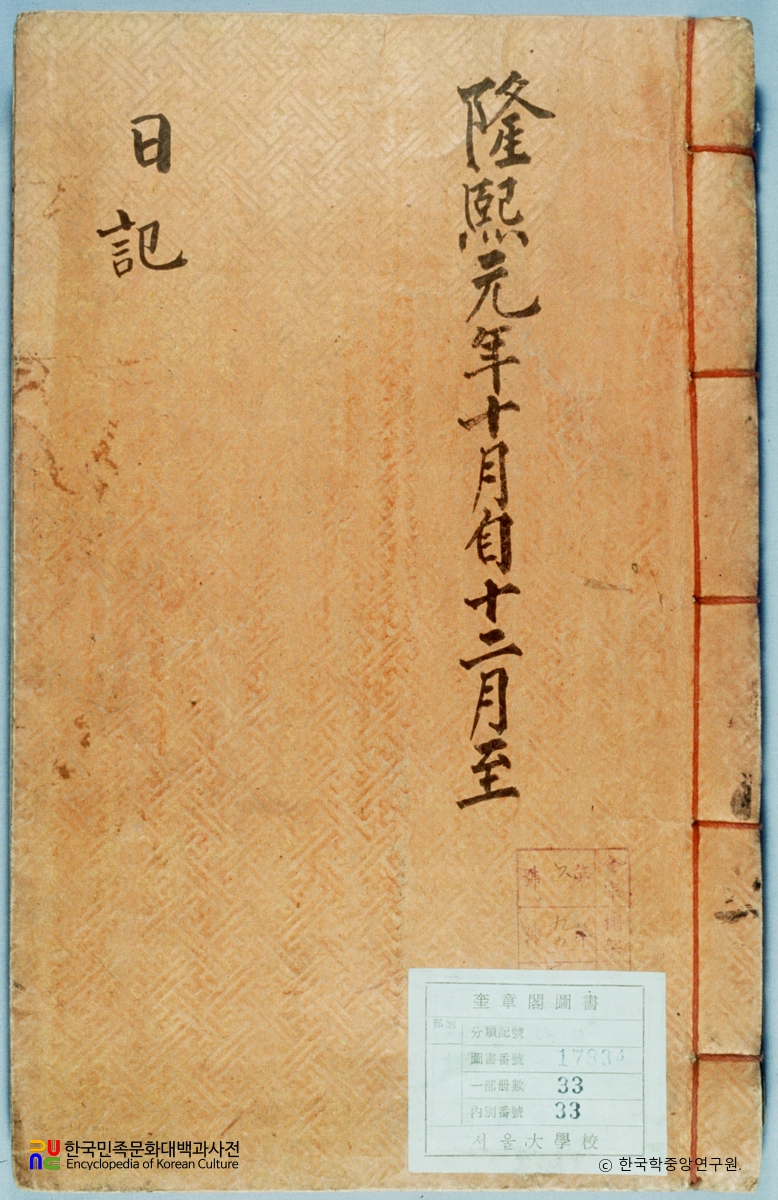 隆熙元年十月自十二月至
日記
奎章閣圖書
分類記號
圖書番號 17834
一部册數 33
內別番號 33
서울大學校
한국민족문화대백과사전
Encyclopedia of Korean Culture
ⓒ 한국학중앙연구원.